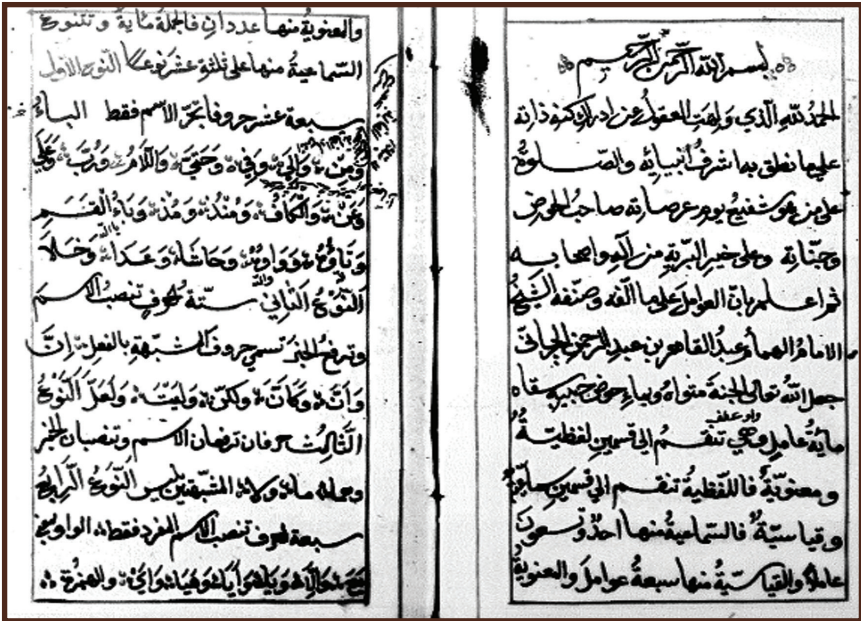 بسم الله الرحمن الرحيم
الحمد لله الذي ولهت العقول عن ادراك كنه ذاته
على ما نطق به اشرف أنبيائه والصلوة
على من هو شفيع يوم عرصاته صاحب الحوض
وجنّاته وعلى خير البرية من آله واصحابه
ثم اعلم بانّ العوامل على ما الّفه وصنّفه الشيخ
الامام الهمام عبد القاهر بن عبد الرحمن الجرجانيّ
جعل الله تعالى الجنة مثواه وبماء حوض حبيبه سقاه
واو عطف
مائة عامل وهي تنقسم الى قسمين لفظيّة
ومعنويّة فاللّفظية تنقسم الى قسمين سماعيّة
وقياسيّة فالسّماعية منها احد وتسعون
عاملا والقياسيّة منها سبعة عوامل والمعنوية
والمعنوية منها عددان فالجملة مائة وتتنوع
السّماعية منها على ثلثة عشر نوعا النّوع الأول
سبعة عشر حروفا تجرّ الاسم فقط الباء
ومن والى وفي وحتّى واللّام وربّ وعلى
وعن والكاف ومنذ ومذ وباء القسم
وتاؤه وواوه وحاشا وعدا وخلا
النّوع الثاني ستّة احرف تنصب الاسم
وترفع الخبر تسمى حروف المشبّهة بالفعل انّ
وأنّ وكأنّ ولكنّ وليت ولعلّ النّوع
الثّالث حرفان ترفعان الاسم وتنصبان الخبر
وهما ما ولا المشبّهتين بليس النّوع الرّابع
سبعة احرف تنصب الاسم المفرد فقط الواو بمعنى
مع والّا ويا وأيا وهيا وأي والهمزة